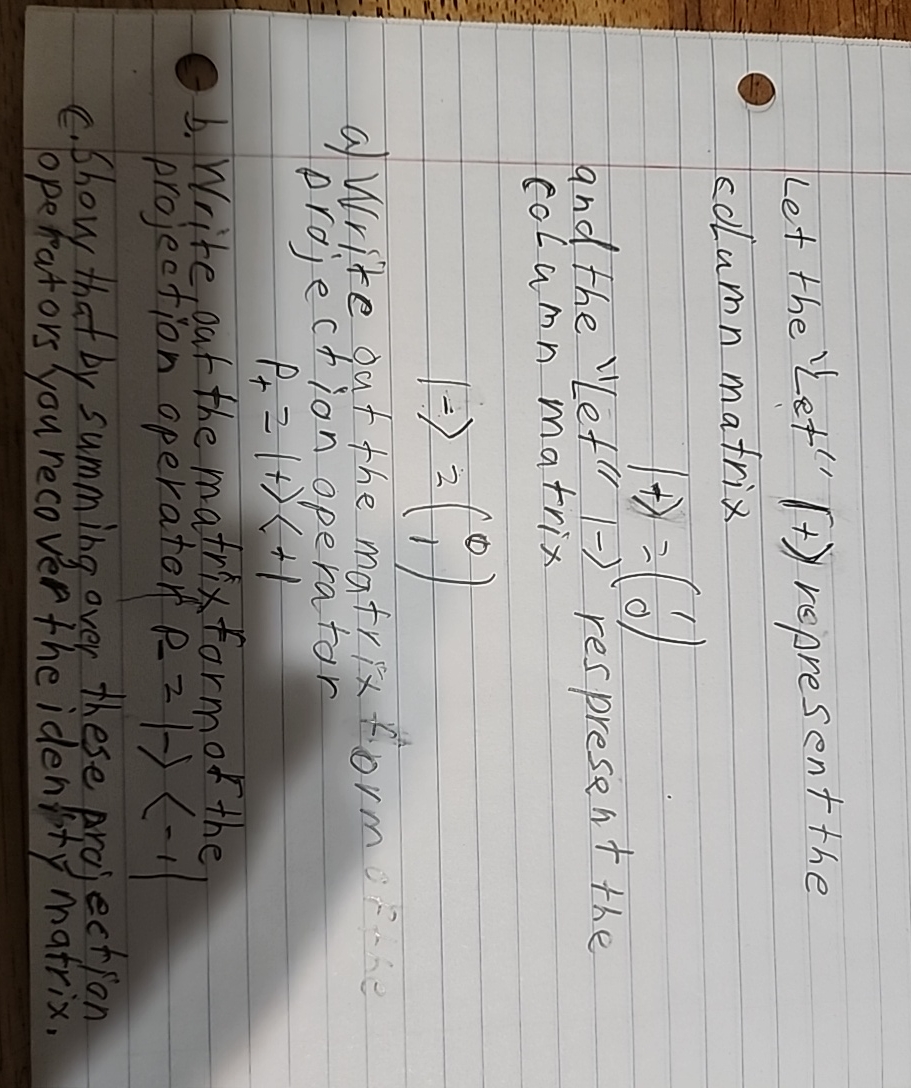 Let the "Let" |+> represent the
column matrix
|+> = (1 0)
and the "Let" |-> respresent the
coLumn matrix
|-> = (0 1)
a) Write out the matrix form of the
projection operator
P+ = |+><+|
b. Write out the matrix form of the
projection operator P- = |-><-|
c. Show that by summing over these projection
operators you recover the identity matrix.